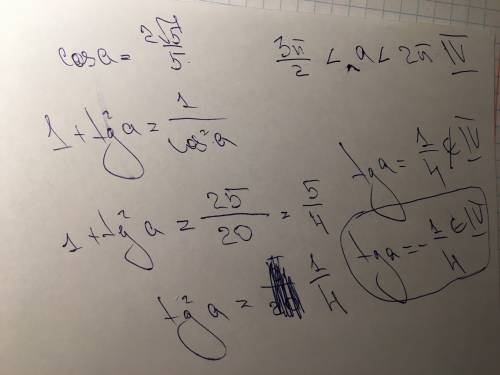 cos a = 2√5/5   3π/2 < a < 2π IV
1 + tg²a = 1/cos²a
1 + tg²a = 25/20 = 5/4
tg²a = 1/4
tg a = 1/4 ∉ IV
tg a = -1/4 ∈ IV